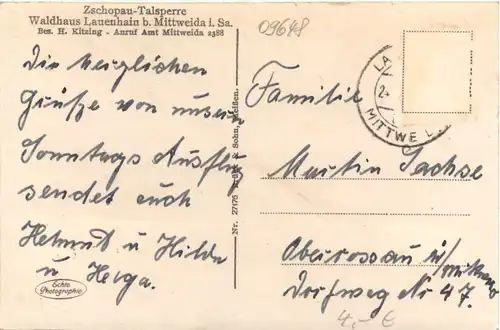 Zschopau-Talsperre
Waldhaus Lauenhain b. Mittweida i. Sa.
Bes. H. Kitzing - Anruf Amt Mittweida 2388
09648
Die herzlichen
Grüße von unsern
Sonntags Ausflug
sendet euch
Helmut u Hilde
u Helga.
Echte
Photographie
Nr. 27175 & Sohn, Meißen.
LA
2
MITTWE
Familie
Martin Sachse
Oberossau ü/Mittweida
Dorfweg Nr 47.
4,- €